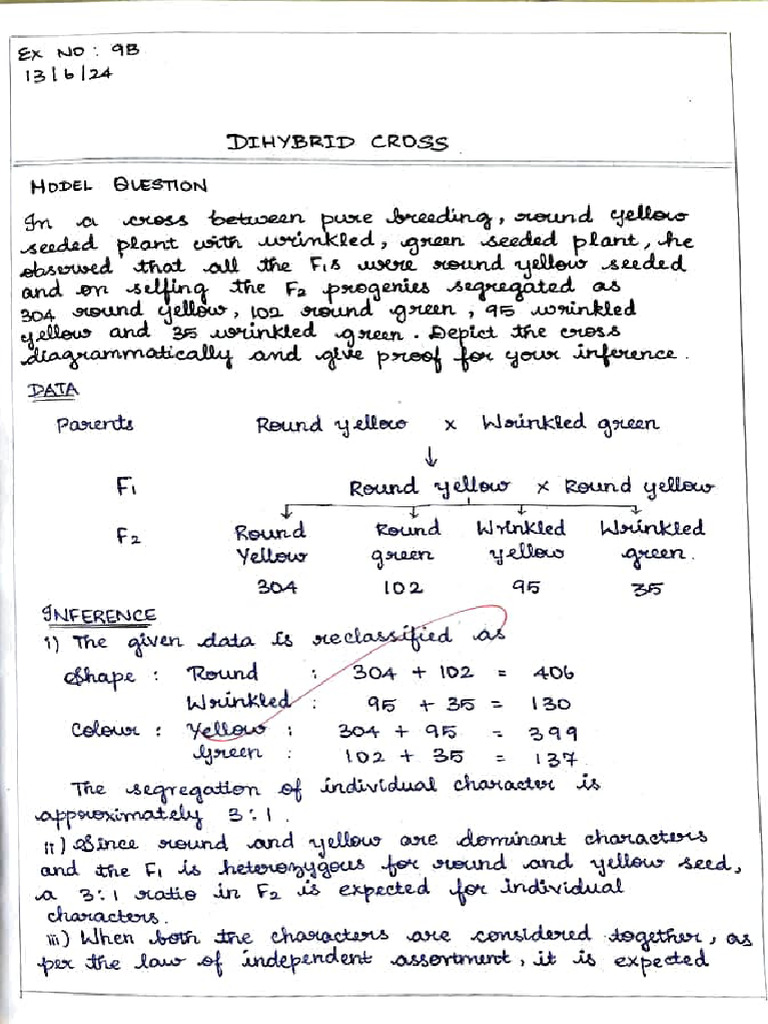 Ex NO: 9B
13/6/24
DIHYBRID CROSS
MODEL QUESTION
In a cross between pure breeding, round yellow
seeded plant with wrinkled, green seeded plant, he
observed that all the F1s were round yellow seeded
and on selfing the F2 progenies segregated as
304 round yellow, 102 round green, 95 wrinkled
yellow and 35 wrinkled green. Depict the cross
diagrammatically and give proof for your inference.
DATA
Parents Round yellow x Wrinkled green
↓
F1 Round yellow x Round yellow
F2 Round Round Wrinkled Wrinkled
Yellow green yellow green.
304 102 95 35
INFERENCE
i) The given data is reclassified as
Shape : Round : 304 + 102 = 406
Wrinkled : 95 + 35 = 130
Colour : Yellow : 304 + 95 = 399
Green : 102 + 35 = 137
The segregation of individual character is
approximately 3:1.
ii) Since round and yellow are dominant characters
and the F1 is heterozygous for round and yellow seed,
a 3:1 ratio in F2 is expected for individual
characters.
iii) When both the characters are considered together, as
per the law of independent assortment, it is expected